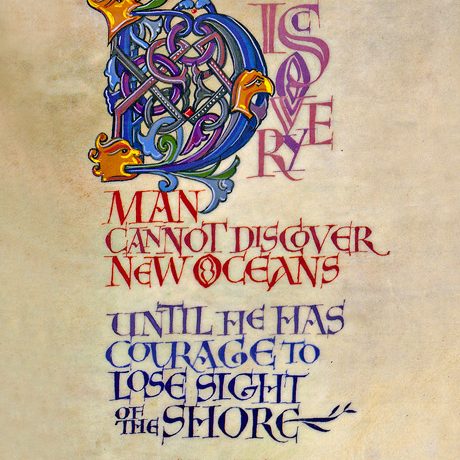 DISCOVERY
MAN
CANNOT DISCOVER
NEW OCEANS
UNTIL HE HAS
COURAGE TO
LOSE SIGHT
OF THE SHORE